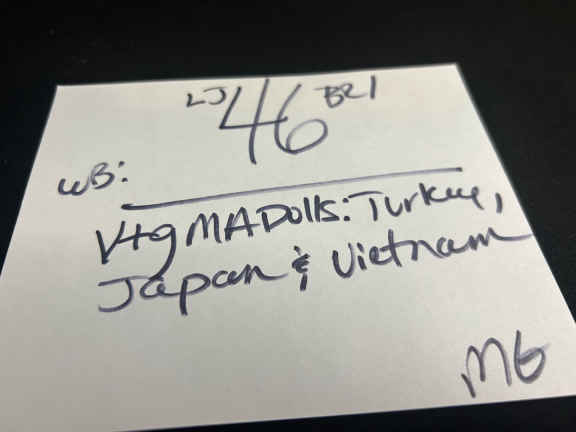 LJ 46 B21
WB:
Vtg MA Dolls: Turkey,
Japan & Vietnam
MG